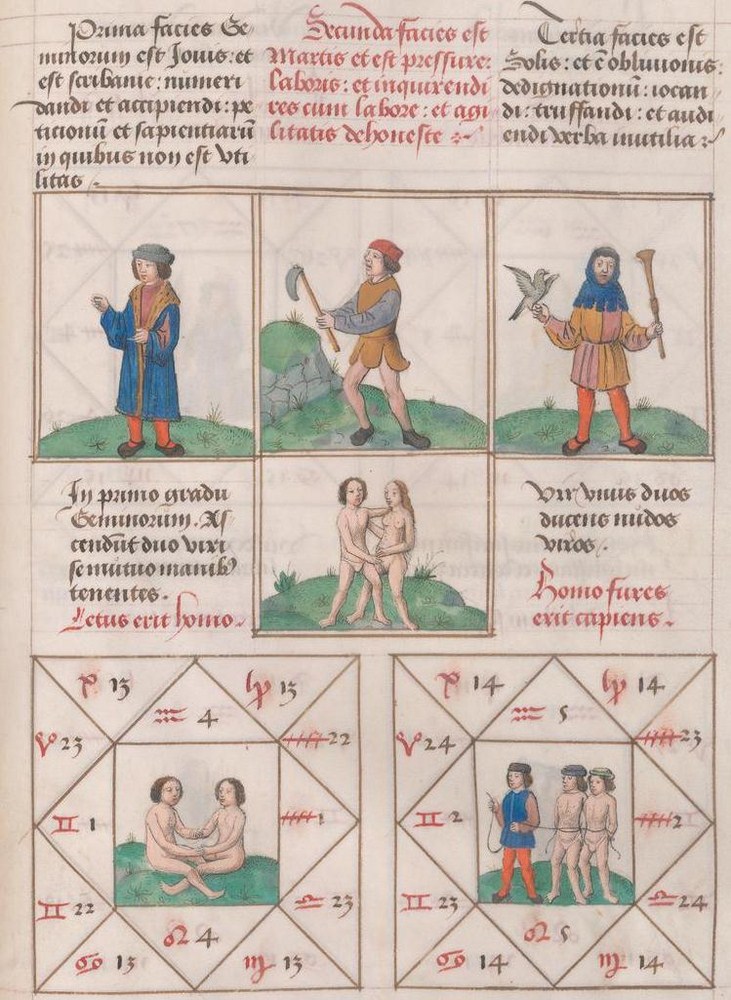 Prima facies Ge
minorum est Jouis: et
est scribanie: numeri
dandi et accipiendi: pe
ticionū et sapientiarū
in quibus non est vti
litas.
Secunda facies est
Martis et est pressure:
laboris: et inquirendi
res cum labore: et agi
litatis dehoneste
Tertia facies est
Solis: et ē obliuionis:
dedignationū: iocan
di: truffandi: et audi
endi verba inutilia
In primo gradu
Geminorum. As
cendūt duo viri
se mutuo manib9
tenentes.
Letus erit homo.
Vir vnus duos
ducens nudos
viros.
Homo fures
erit capiens.
♓ 13
♑ 13
♒ 4
♈ 23
♐ 22
♊ 1
♐ 1
♊ 22
♎ 23
♌ 4
♋ 13
♍ 13
♓ 14
♑ 14
♒ 5
♈ 24
♐ 23
♊ 2
♐ 2
♊ 23
♎ 24
♌ 5
♋ 14
♍ 14